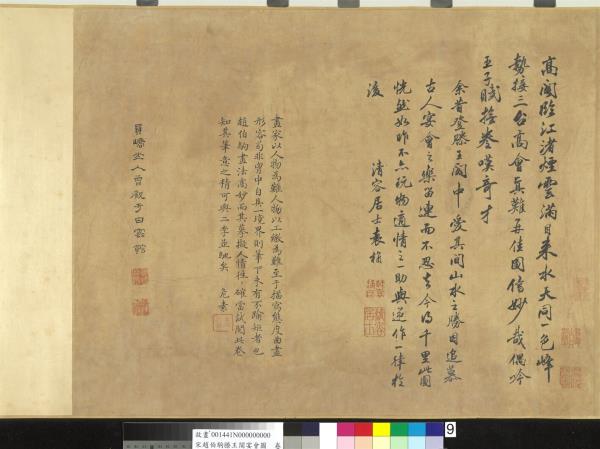 高閣臨江渚煙雲滿目來水天同一色峰
勢接三台高會真難再佳圖信妙哉偶吟
王子賦捲卷嘆奇才
余昔登滕王閣中愛其間山水之勝因追慕
古人宴會之樂留連而不忍去今得千里此圖
恍然如昨不亦玩物適情之一助與遂作一律於
後
清容居士袁桷
畫家以人物為難人物以工緻為難至于描寫態度曲盡
形容苟非胸中自具一境界則筆下未有不踰矩者也
趙伯駒畫法高妙而其摹擬人情往往確當試閱此卷
知其筆意之精可與二李並馳矣 危素
曾觀于白雲館
9
故畫 001441N000000000
宋趙伯駒滕王閣宴會圖 卷